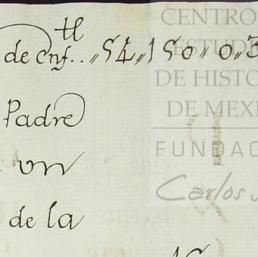 de enf.. 54,150,,0,,3
Padre
un
de la
CENTRO
ESTUDI
DE HISTO
DE MEXI
FUNDAC
Carlos